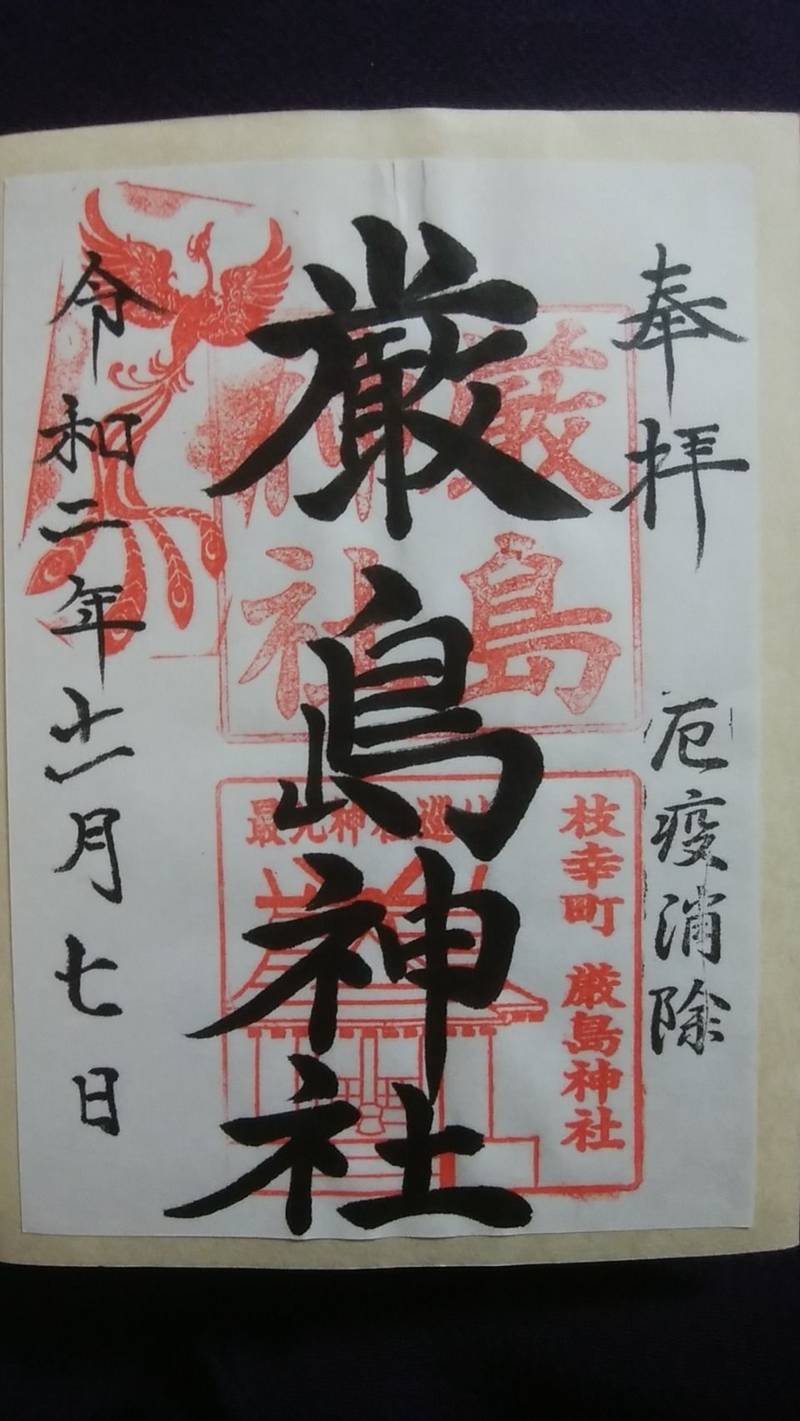 奉拝
厄疫消除
厳島神社
厳島
神社
枝幸町 厳島神社
令和二年十一月七日